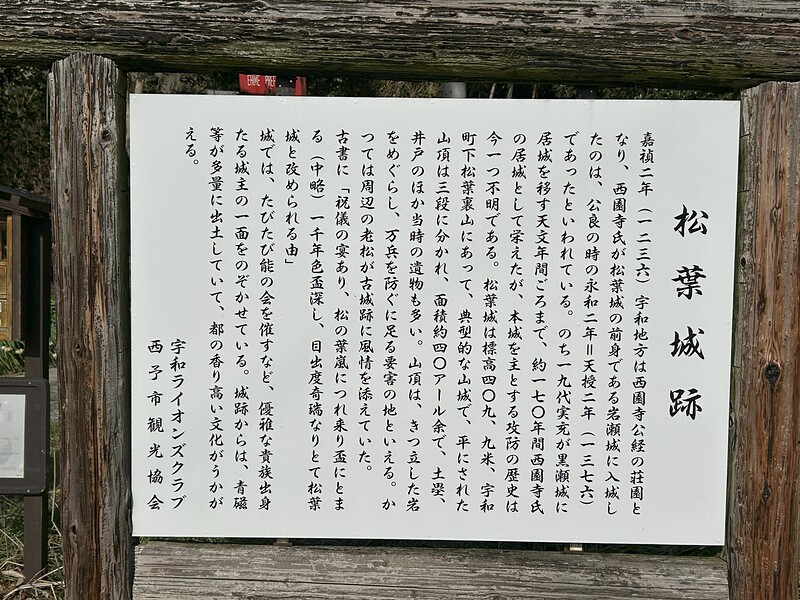 EHIME PREF
松葉城跡
嘉禎二年（一二三六）宇和地方は西園寺公経の荘園と
なり、西園寺氏が松葉城の前身である岩瀬城に入城し
たのは、公良の時の永和二年＝天授二年（一三七六）
であったといわれている。のち一九代実充が黒瀬城に
居城を移す天文年間ごろまで、約一七〇年間西園寺氏
の居城として栄えたが、本城を主とする攻防の歴史は
今一つ不明である。松葉城は標高四〇九、九米、宇和
町下松葉裏山にあって、典型的な山城で、平にされた
山頂は三段に分かれ、面積約四〇アール余で、土塁、
井戸のほか当時の遺物も多い。山頂は、きつ立した岩
をめぐらし、万兵を防ぐに足る要害の地といえる。か
つては周辺の老松が古城跡に風情を添えていた。
古書に「祝儀の宴あり、松の葉嵐につれ来り盃にとま
る（中略）一千年色盃深し、目出度奇瑞なりとて松葉
城と改められる由」
城では、たびたび能の会を催すなど、優雅な貴族出身
たる城主の一面をのぞかせている。城跡からは、青磁
等が多量に出土していて、都の香り高い文化がうかが
える。
宇和ライオンズクラブ
西予市観光協会